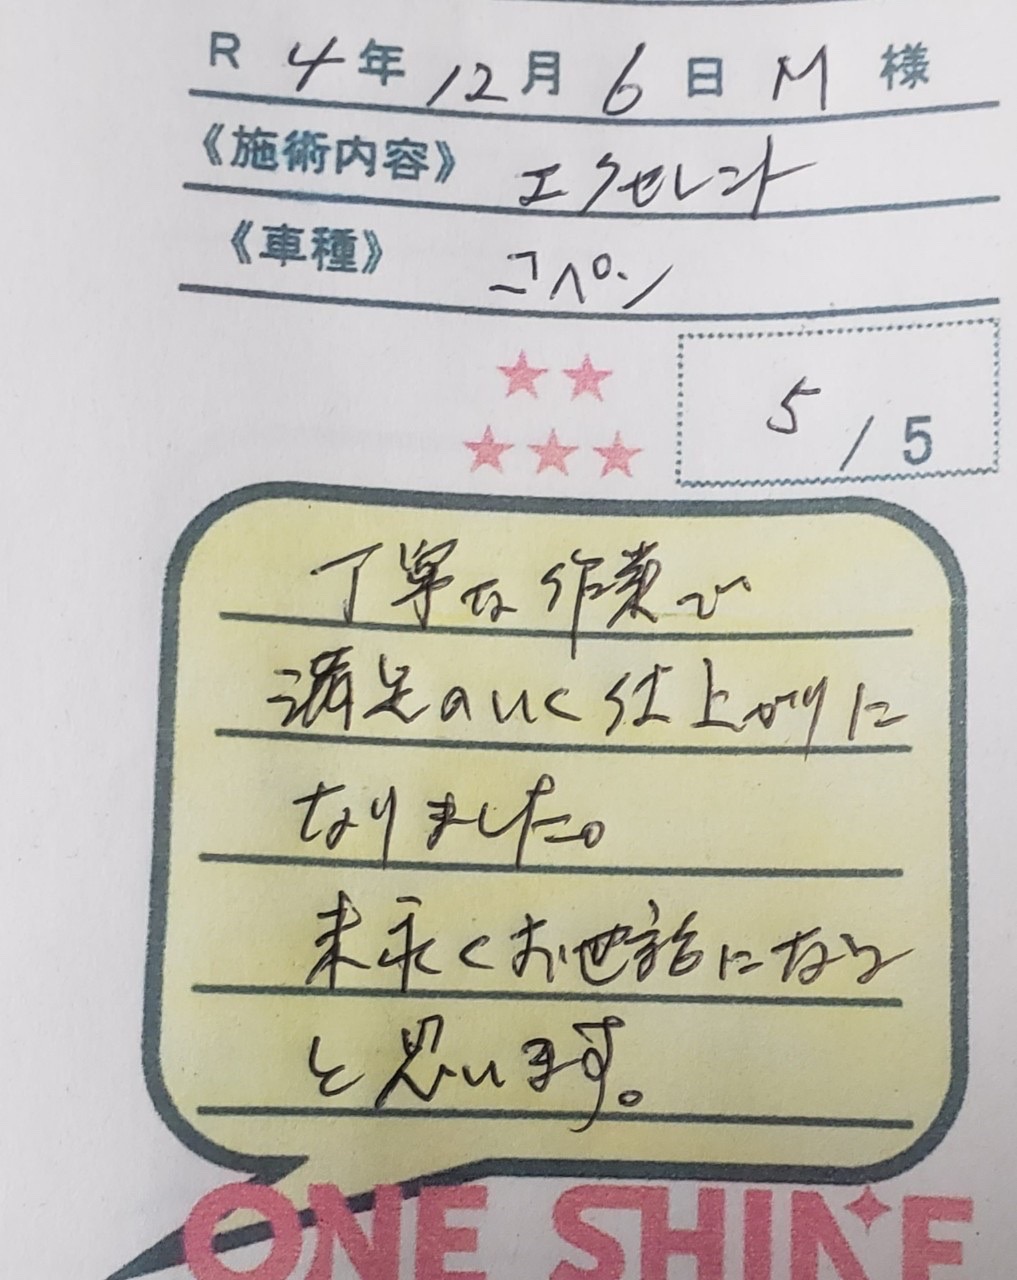 R 4年12月6日 M 様
《施術内容》 エクセレント
《車種》 コペン
5/5
丁寧な作業で
満足のいく仕上がりに
なりました。
末永くお世話になる
と思います。
ONE SHINE